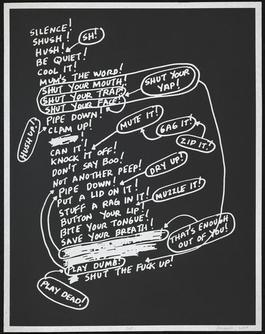 SILENCE!
SHUSH!
SH!
HUSH!
BE QUIET!
COOL IT!
MUM'S THE WORD!
SHUT YOUR MOUTH!
SHUT YOUR TRAP!
SHUT YOUR FACE!
SHUT YOUR
YAP!
PIPE DOWN!
CLAM UP!
HUSH UP!
MUTE IT!
GAG IT!
ZIP IT!
CAN IT!
KNOCK IT OFF!
DON'T SAY BOO!
NOT ANOTHER PEEP!
DRY UP!
PIPE DOWN!
PUT A LID ON IT!
MUZZLE IT!
STUFF A RAG IN IT!
BUTTON YOUR LIP!
BITE YOUR TONGUE!
SAVE YOUR BREATH!
THAT'S ENOUGH
OUT OF YOU!
PLAY DUMB!
SHUT THE FUCK UP!
PLAY DEAD!